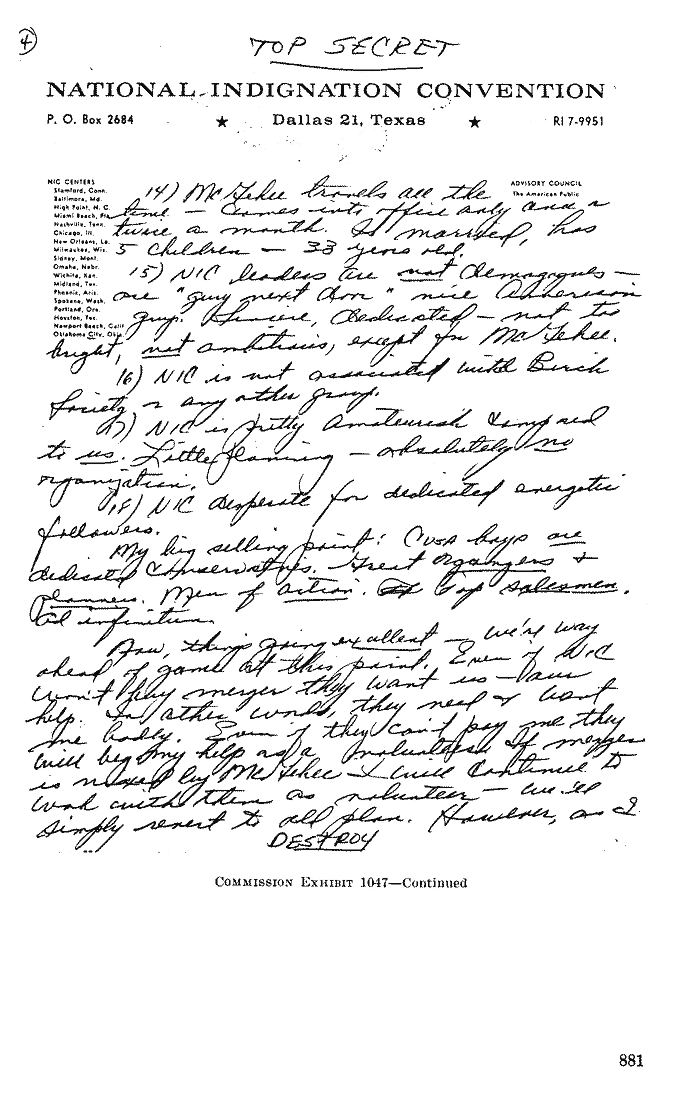 4
TOP SECRET
NATIONAL INDIGNATION CONVENTION
P. O. Box 2684 ★ Dallas 21, Texas ★ RI 7-9951
NIC CENTERS
Stamford, Conn.
Baltimore, Md.
High Point, N. C.
Miami Beach, Fla.
Nashville, Tenn.
Chicago, Ill.
New Orleans, La.
Milwaukee, Wis.
Sidney, Mont.
Omaha, Nebr.
Wichita, Kan.
Midland, Tex.
Phoenix, Ariz.
Spokane, Wash.
Portland, Ore.
Houston, Tex.
Newport Beach, Calif
Oklahoma City, Okla.
ADVISORY COUNCIL
The American Public
14) McGehee travels all the
time – comes into office only once or
twice a month. Is married, has
5 children – 33 years old.
15) NIC leaders are not demagogues –
are "guy next door" nice American
guys. Sincere, dedicated – not too
bright, not ambitious, except for McGehee.
16) NIC is not associated with Birch
Society or any other group.
17) NIC is pretty amateurish compared
to us. Little planning – absolutely no
organization.
18) NIC desperate for dedicated energetic
followers.
My big selling point: CUSA boys are
dedicated conservatives. Great organizers &
planners. Men of action. Top salesmen.
Ad infinitum.
Now, things going excellent – we're way
ahead of game at this point. Even if NIC
won't buy merger they want us – our
help. In other words, they need & want
me badly. Even if they can't pay me they
will beg my help as a volunteer. If merger
is nixed by McGehee – I will continue to
work with them as volunteer – we'll
simply revert to old plan. However, as I
DESTROY
COMMISSION EXHIBIT 1047—Continued
881